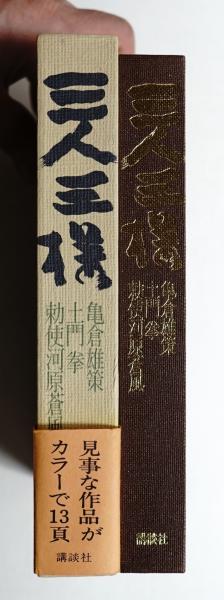 三人三様
亀倉雄策
土門拳
勅使河原蒼風
見事な作品が
カラーで13頁
講談社
三人三様
亀倉雄策
土門拳
勅使河原蒼風
講談社